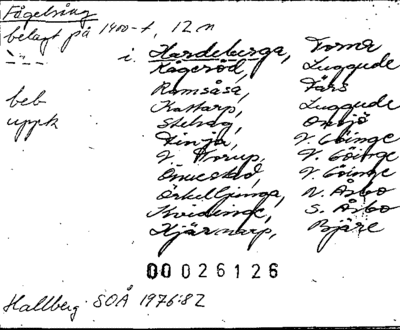 Fågelsång
belagt på 1400-t, 12 n
-"- i Hardeberga, Torna
Kågeröd, Luggude
Ramsåsa, Färs
beb Kattarp, Luggude
uppk Stehag, Onsjö
Finja, V. Göinge
V. Torup, V. Göinge
V. Göinge
Örkelljunga, N. Åsbo
Kvidinge, S. Åsbo
Hjärnarp, Bjäre
00026126
Hallberg SOÅ 1976:82